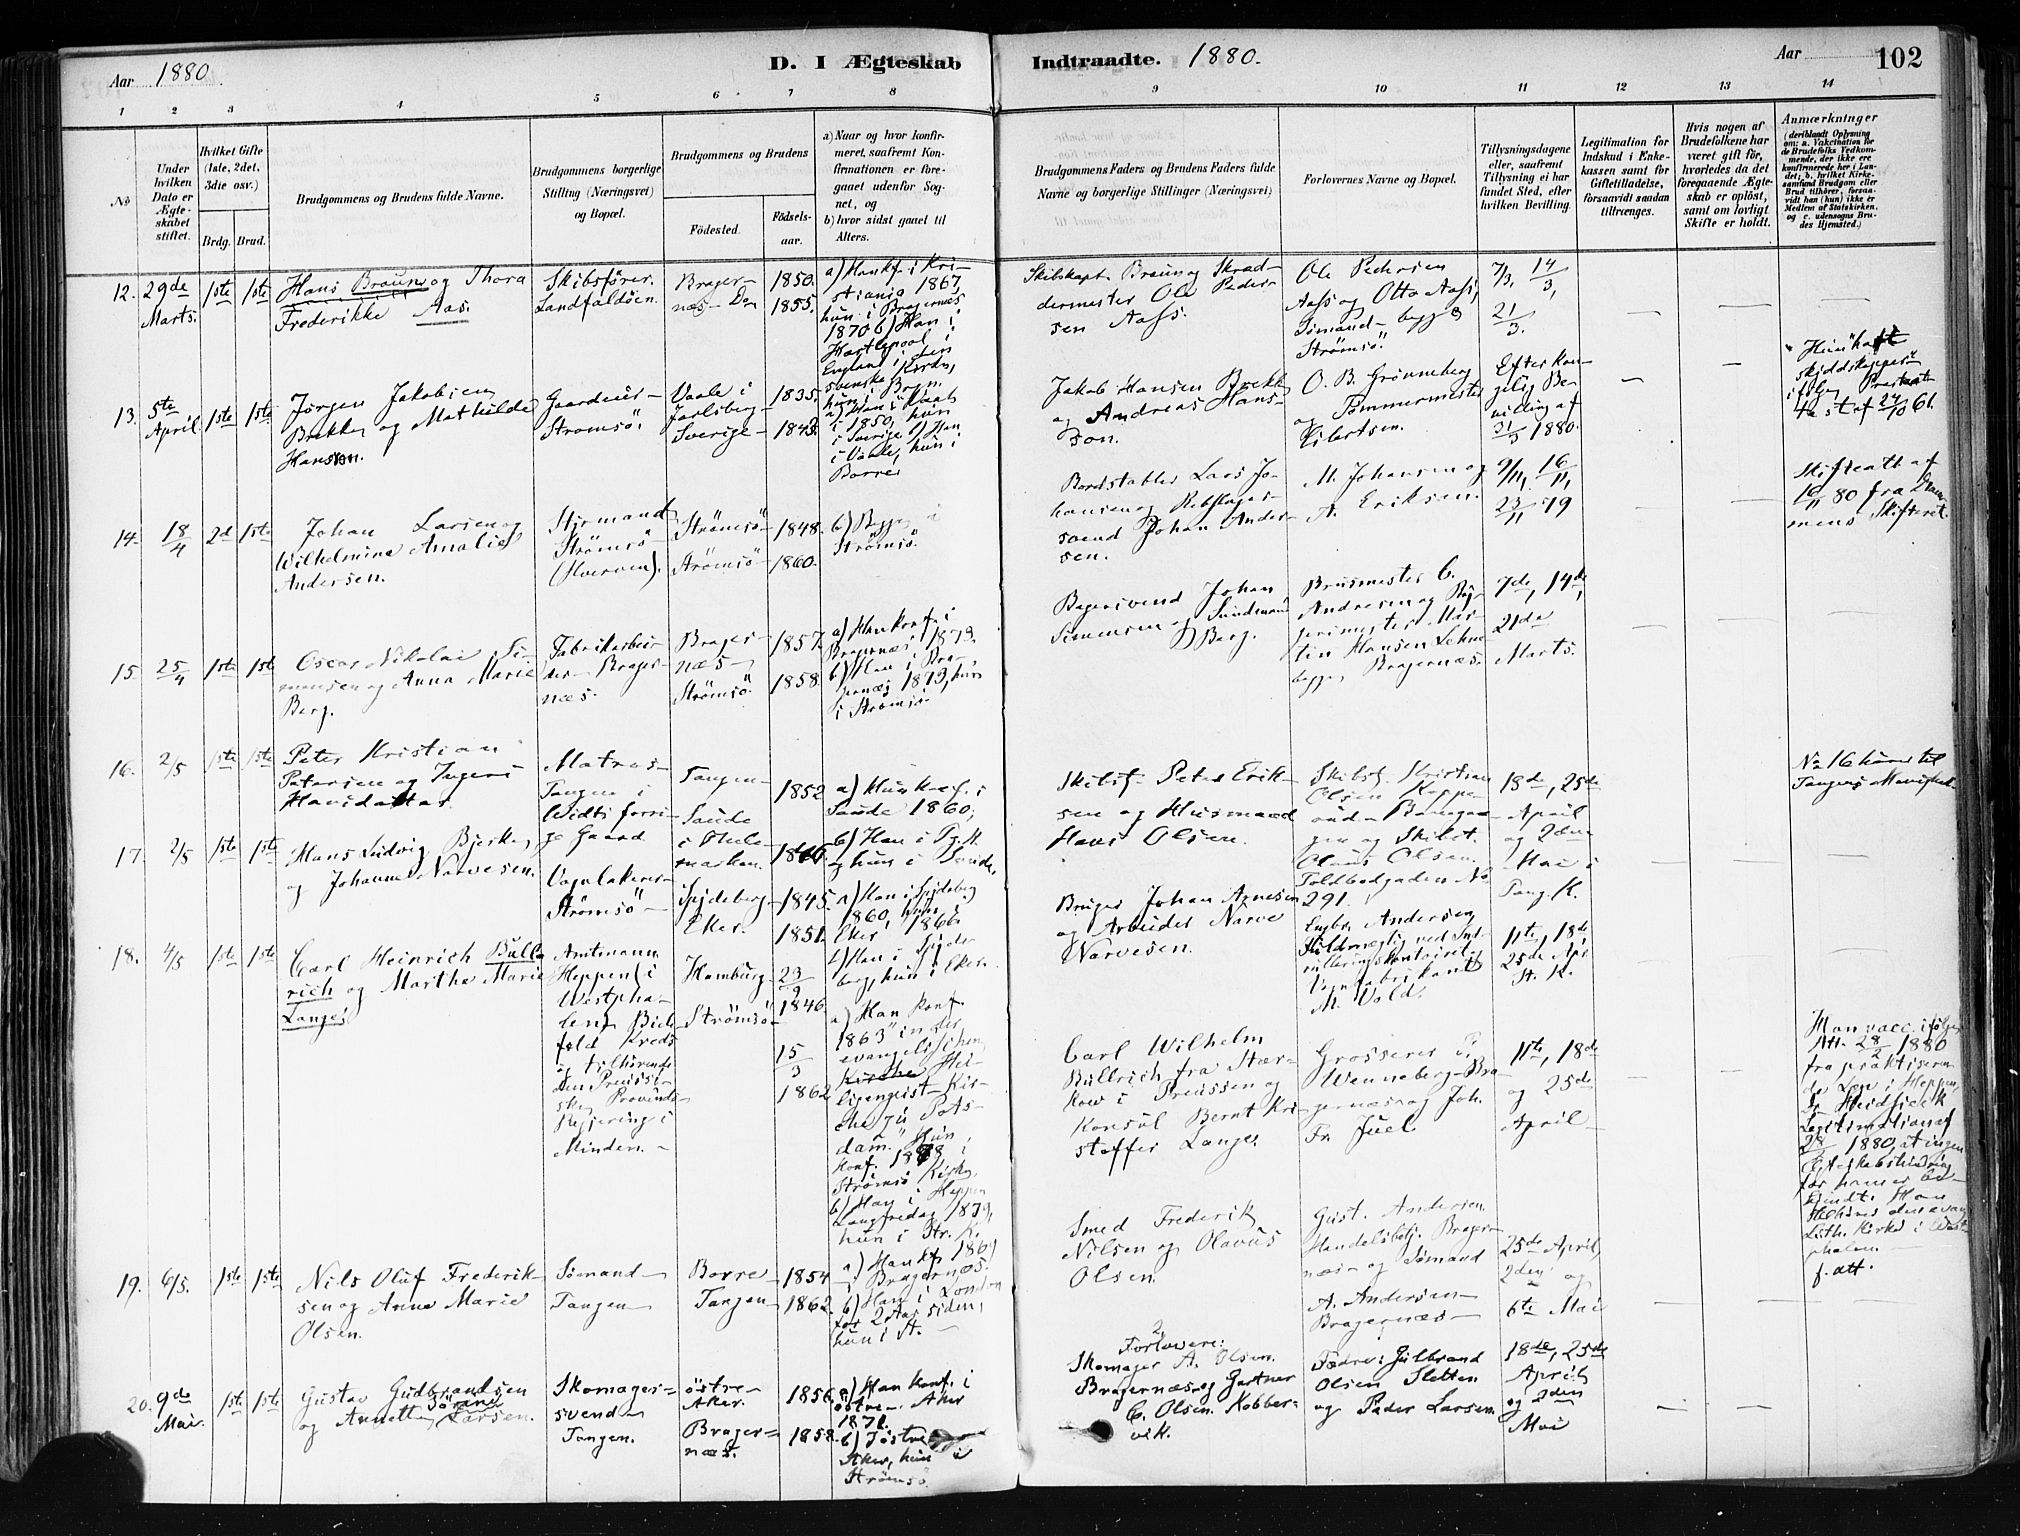 Aar 1880.
D. I Ægteskab Indtraadte. 1880.
Aar
102
1 2 3 4 5 6 7 8 9 10 11 12 13 14
No
Under hvilken Dato er Ægteskabet stiftet.
Hvilket Gifte (1ste, 2det, 3die osv.)
Brdg. Brud.
Brudgommens og Brudens fulde Navne.
Brudgommens borgerlige Stilling (Næringsvei) og Bopæl.
Brudgommens og Brudens
Fødested.
Fødselsaar.
a) Naar og hvor konfirmeret, saafremt Konfirmationen er foregaaet udenfor Sognet, og
b) hvor sidst gaaet til Alters.
Brudgommens Faders og Brudens Faders fulde Navne og borgerlige Stillinger (Næringsvei)
Forlovernes Navne og Bopæl.
Tillysningsdagene eller, saafremt Tillysning ei har fundet Sted, efter hvilken Bevilling.
Legitimation for Indskud i Enkekassen samt for Giftetilladelse, forsaavidt saadan tiltrænges.
Hvis nogen af Brudefolkene har været gift før, hvorledes da det foregaaende Ægteskab er opløst, samt om lovligt Skifte er holdt.
Anmærkninger
(deriblandt Oplysning om: a. Vakcination for de Brudefolks Vedkommende, der ikke ere konfirmerede her i Landet; b. hvilket Kirkesamfund Brudgom eller Brud tilhører, forsaavidt han (hun) ikke er Medlem af Statskirken, og c. udensogns Brudes Hjemsted.)
12. 29de Marts. 1ste 1ste
Hans Braun og Thora
Frederikke Aas.
Skibsfører.
Landfaldöen.
Bragernæs - Do
1850.
1855.
a) Han kf. i Kristiania 1867,
hun i Bragernæs
1870 b) Han i
Hartlepool
England i den
svenske Kirke,
hun i Brgn.
Skibskapt. Braun og Skræddermester Ole Pedersen Aass.
Ole Pedersen
Aass og Otto Aass,
Sømand - begge
Strömsö.
7/3, 14/3,
21/3.
13. 5te April. 1ste 1ste
Jørgen Jakobsen
Brekke og Mathilde
Hanson.
Gaardeier
Strømsö.
Vaale i
Jarlsberg -
Sverige -
1835.
1843.
a) Han i Vaale
i 1850, hun
i Sverige b) Han
i Vaale, hun i
Borre
Jakob Hansen Brekke
og Andreas Hanson.
O. B. Grönneberg
Tømmermester
og
Eilertsen.
Efter kongelig Bevilling af
31/3 1880.
14. 18/4 2d 1ste
Johan Larsen og
Wilhelmine Amalie
Andersen.
Styrmand
Strömsö
Strömsö
Strömsö
1848.
1860.
b) Begge i
Strömsö.
Bordstabler Lars Johansen og Rebslagersvend Johan Andersen.
M. Johansen og
A. Eriksen.
9/11, 16/11,
23/11 79
Skifteatt af
10/11 80 fra Drammens Skifteret.
15. 25/4 1ste 1st
Oscar Nikolai Simensen og Anna Marie
Berg.
Fabrikarbeider - Bragernæs.
Bragernæs -
Strömsö.
1857.
1858.
a) Han konf. i
Bragernæs 1873.
b) Han i Bragernæs 1873, hun
i Strömsö.
Bagersvend Johan
Simensen og
Berg.
Brusmester C.
Andresen og
tin Hansen
begge, Bragernæs.
7de, 14de,
21de
Marts.
16. 2/5 1ste 1ste
Peter Kristian
Petersen og Ingeri
Hansdatter.
Matros -
Tangen i
gaard
Tangen -
Sande
1852
1846
a) Hun konf. i
Sande 1860;
b) Han i Tg. K.
og hun i Sande.
Skibsf. Peter Eriksen og Husmand
Hans Olsen.
Skibst. Kristian
Olsen
Olaus Olsen.
Toldbodgaden No
291.
18de, 25de
April
og 2den
Mai i
Tang. K.
No 16 hører til
Tangens Menighed.
17. 2/5 1ste 1ste
Hans Ludvig Bjerke,
og Johanne Narvesen.
Strömsö -
Spydeberg -
Eker.
1845.
1851.
a) Han i Spydeberg
1860, hun i
Eker, 1866.
b) Han i Spydeberg, hun i Eker.
Bruger Johan Arnesen
og Arbeider Narve
Narvesen.
Engbr. Andersen,
M. Vold.
11te, 18de
25de Apr
St. K.
18. 4/5 1ste 1ste
Carl Heinrich Bullrich og Martha Marie
Lange,
Amtmann
Heppen i
Westphalen, Bielefeld Kreds
og tilhørende
den Preussiske Provinds
Regjering i
Minden. -
Hamburg -
Strömsö -
23/9
1846
15/3
1862
a) Han konf.
1863 "in der
evangelischen
Kirche Heiligengeist-Kirche zu Potsdam." Hun
konf. 1878 i
Strömsö Kirke,
b) Han i Heppen
Langfredag 1879,
hun i Str. K.
Carl Wilhelm
Bullrich fra
i Preussen og
Konsul Bernt Kristoffer Lange.
Grosserer P.
Wenneberg - Bragernæs og Joh.
Fr. Juel.
11te, 18de
og 25de
April -
Han vacc. ifølge
Att. 28/2 1880
fra praktiserende Læge i Heppen
Legitimation af
28/2 1880, at ingen
Ægteskabshindring
for hans er bekjendt. Han
tilhører den evang.
Luth. Kirke i Westphalen. -
f. att.
19. 6/5. 1ste 1ste
Nils Oluf Frederiksen og Anne Marie
Olsen.
Sømand -
Tangen
Borre
Tangen
1854
1862.
a) Han kf. 1869
i Bragernæs.
b) Han i London
for 2 Aar siden,
hun i St. -
Smed Frederik
Nilsen og Olavus
Olsen.
Gust. Andersen
Handelsbetj. Bragernæs - og Sømand
A. Andersen -
Bragernæs -
25de April,
2den og
6te Mai
20. 9de Mai. 1ste 1ste
Gustav Gudbrandsen
og Annette Larsen.
Skomagersvend -
Tangen.
østre -
Aker.
Bragernæs.
1856.
1858.
a) Han konf. i
østre - Aker
1871.
b) I östre
Aker, hun i
Strömsö.
2 Forlovere:
Skomager A. Olsen.
Bragernæs og Gartner
C. Olsen. Kobbervik.
Fædre: Gulbrand
Olsen Sletten
og Peder Larsen.
18de, 25de
April
og 2den
Mai